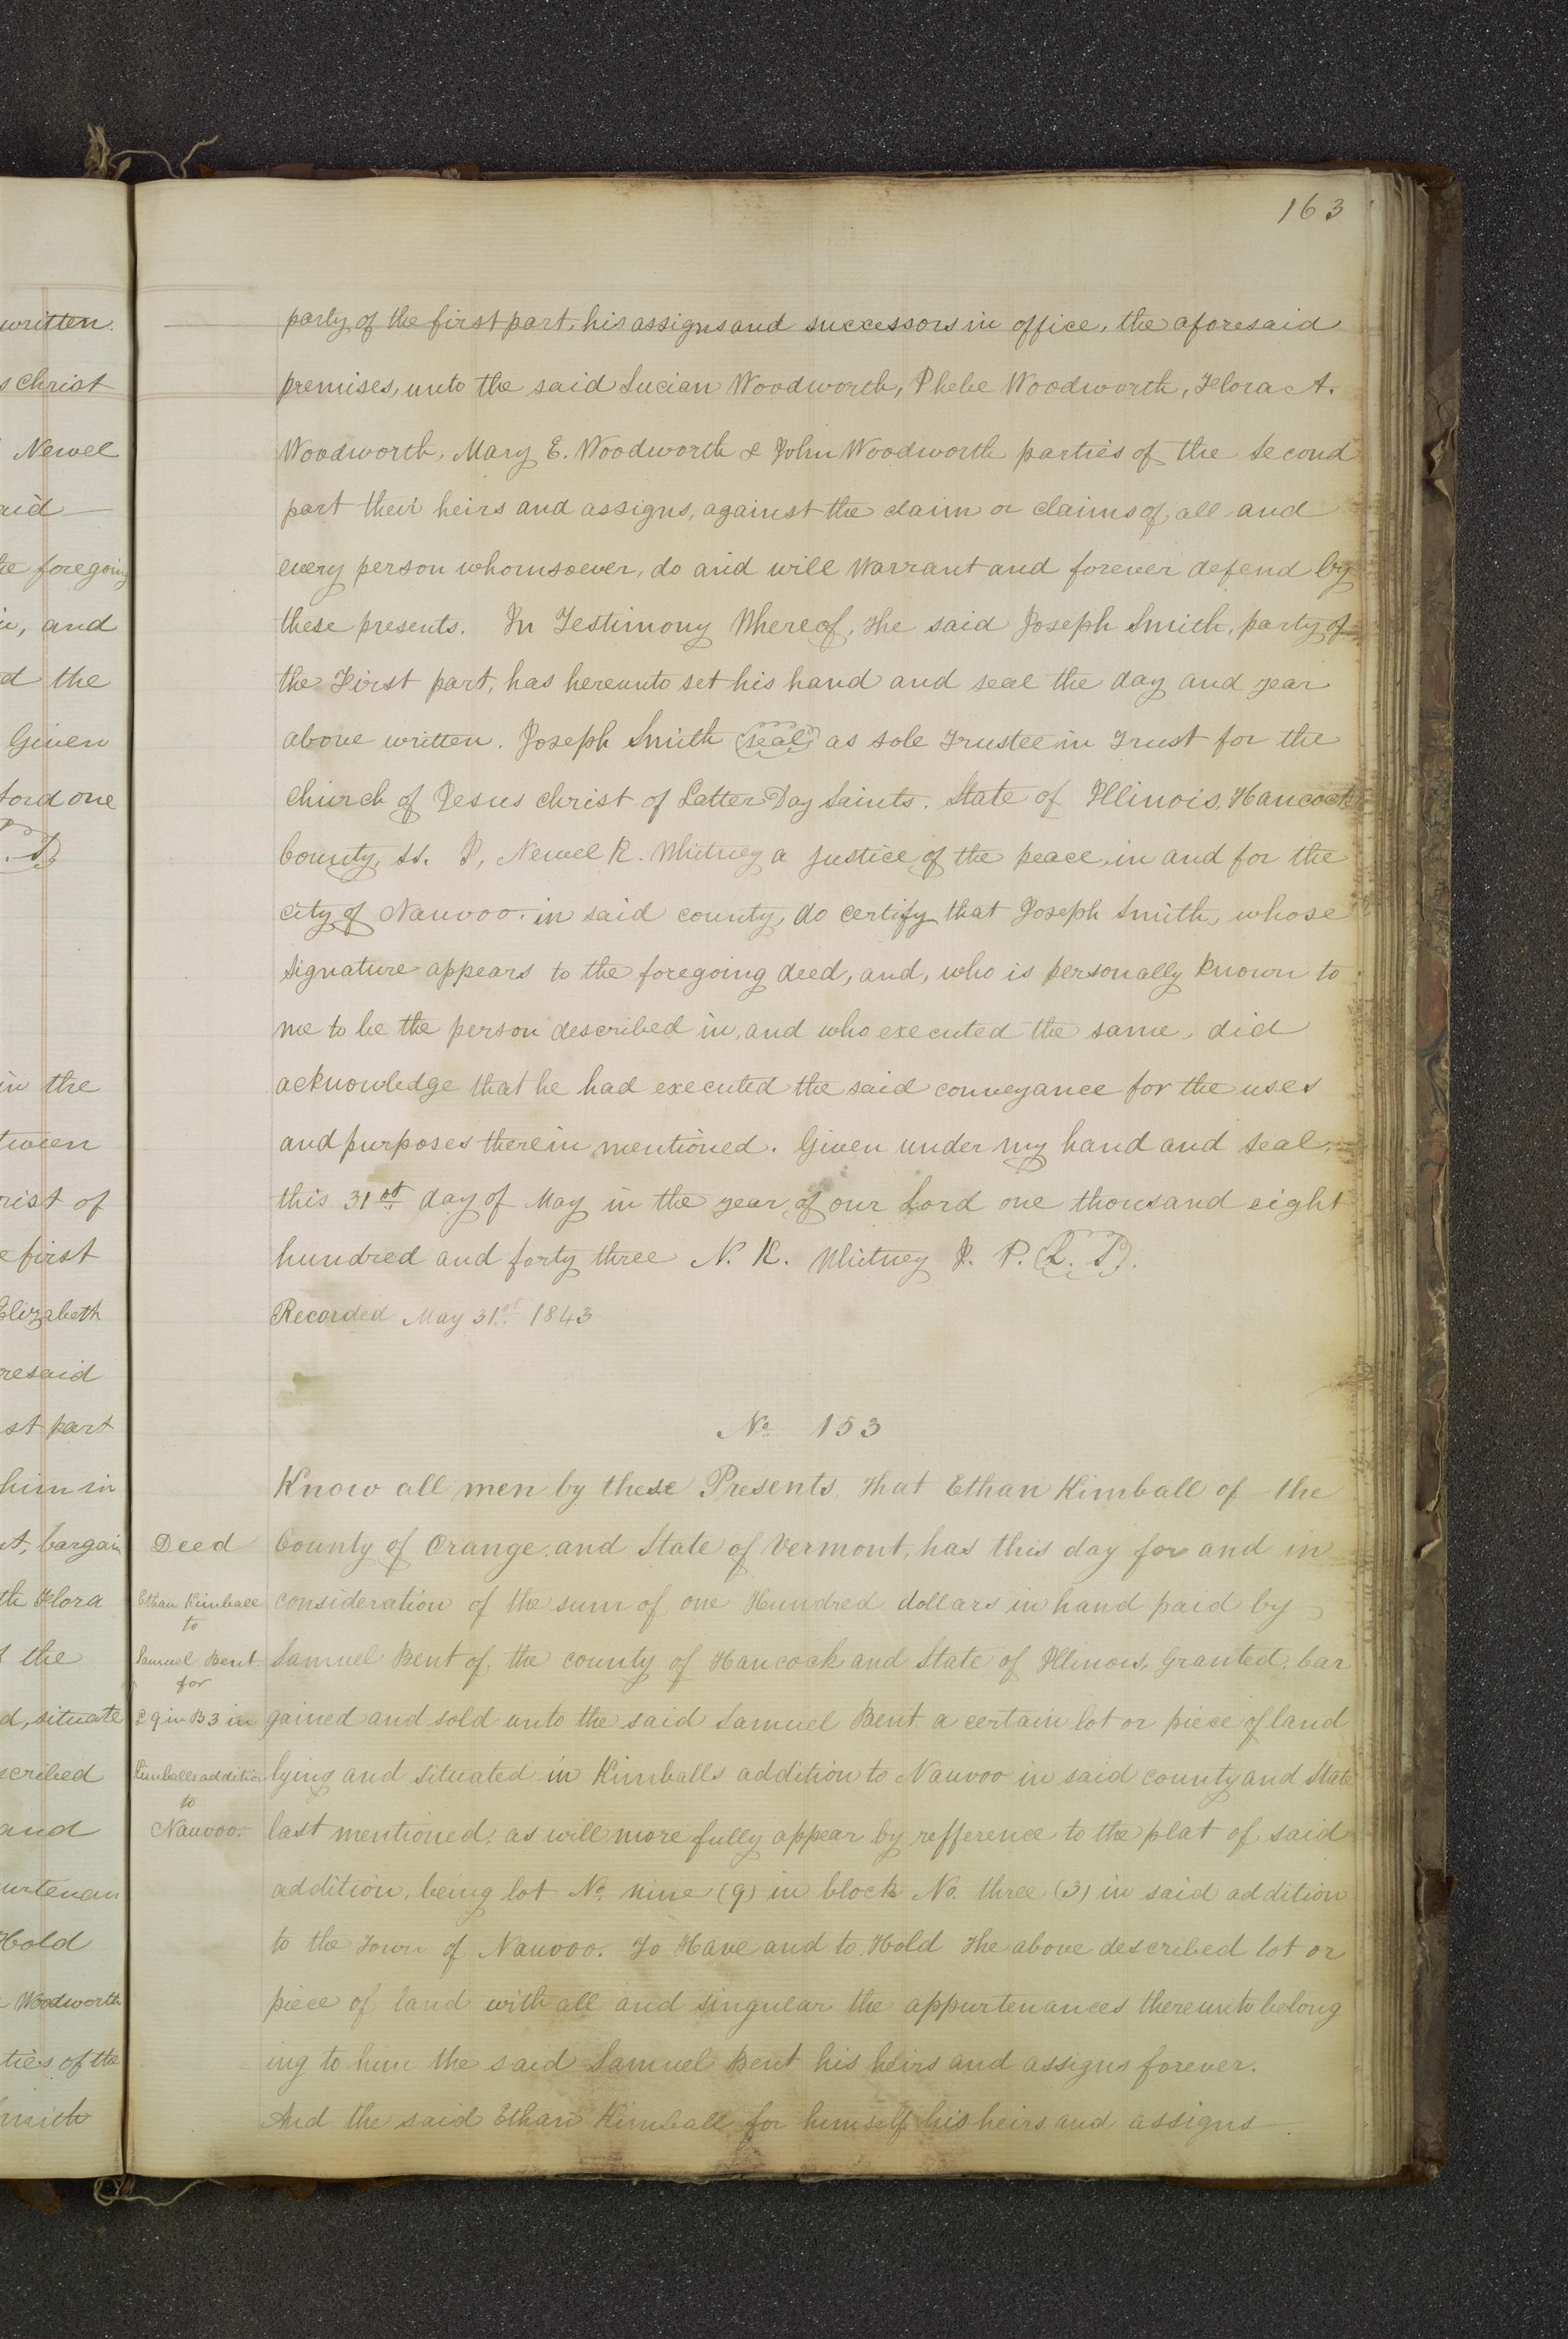 163
written.
s Christ
Newel
aid
he foregoing
in, and
d the
Given
Lord one
in the
tween
rist of
e first
Elizabeth
resaid
st part
him in
nt, bargain
th Flora
the
d, situate
scribed
and
urtenan
Hold
Woodworth
ties of the
Smith
party of the first part, his assigns and successors in office, the aforesaid
premises, unto the said Lucian Woodworth, Phebe Woodworth, Flora A.
Woodworth, Mary E. Woodworth & John Woodworth parties of the Second
part their heirs and assigns, against the claim or claims of all and
every person whomsoever, do and will Warrant and forever defend by
these presents. In Testimony Whereof, the said Joseph Smith, party of
the First part, has hereunto set his hand and seal the day and year
above written. Joseph Smith (seal) as sole Trustee in Trust for the
Church of Jesus Christ of Latter Day Saints. State of Illinois, Hancock
County, ss. I, Newel K. Whitney a Justice of the peace, in and for the
city of Nauvoo. in said county, do certify that Joseph Smith, whose
signature appears to the foregoing deed, and, who is personally known to
me to be the person described in, and who executed the same, did
acknowledge that he had executed the said conveyance for the uses
and purposes therein mentioned. Given under my hand and seal,
this 31st day of May in the year of our Lord one thousand eight
hundred and forty three N. K. Whitney J. P. (L. S).
Recorded May 31st 1843
No 153
Know all men by these Presents that Ethan Kimball of the
Deed
County of Orange. and State of Vermont, has this day for and in
Ethan Kimball
consideration of the sum of one Hundred dollars in hand paid by
to
Samuel Bent
Samuel Bent of the county of Hancock and State of Illinois, Granted, bar
for
L 9 in B 3 in
gained and sold unto the said Samuel Bent a certain lot or piece of land
Kimballs addition
lying and situated in Kimballs addition to Nauvoo in said county and State
to
Nauvoo.
last mentioned, as will more fully appear by refference to the plat of said
addition, being lot No. nine (9) in block No. three (3) in said addition
to the Town of Nauvoo. To Have and to Hold the above described lot or
piece of land with all and singular the appurtenances thereunto belong
ing to him the said Samuel Bent his heirs and assigns forever.
And the said Ethan Kimball for himself his heirs and assigns